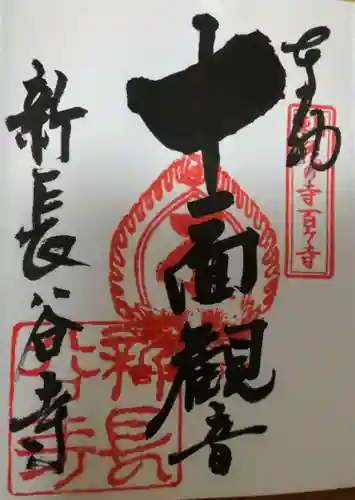 奉拝
の寺百ヶ寺
十一面觀音
新長谷寺
新長
谷寺